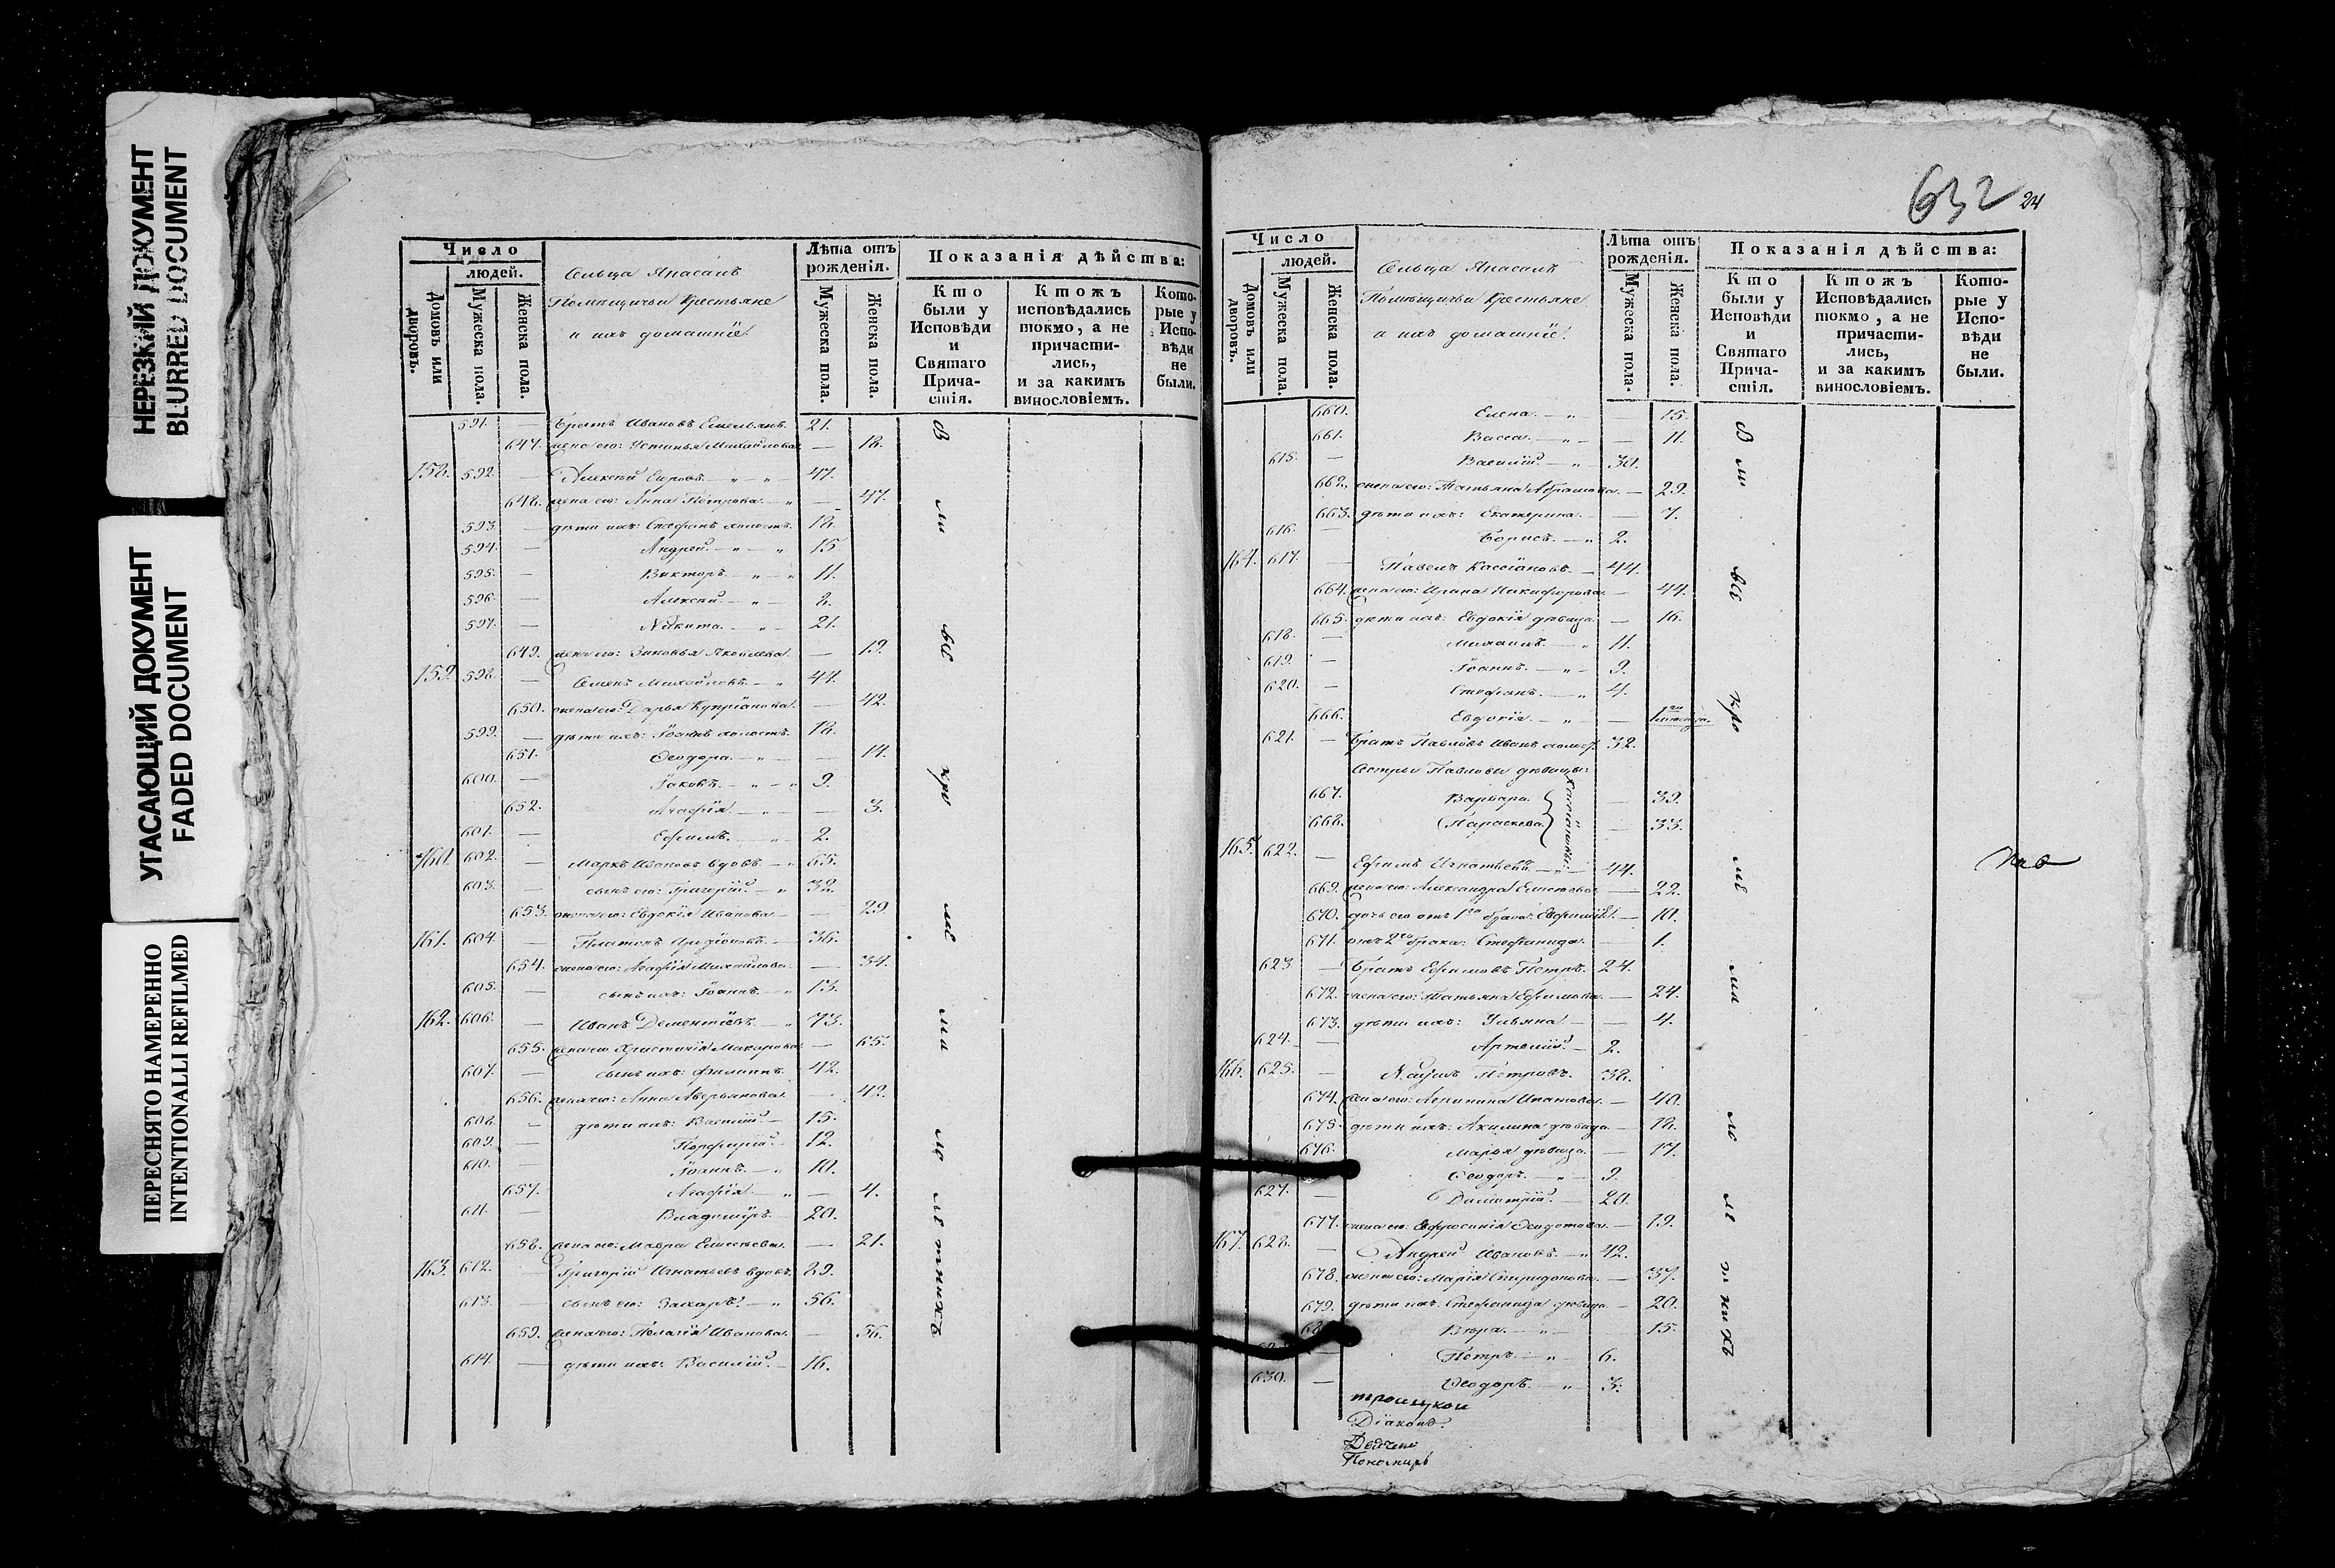 НЕРЕЗКИЙ ДОКУМЕНТ
BLURRED DOCUMENT
УГАСАЮЩИЙ ДОКУМЕНТ
FADED DOCUMENT
ПЕРЕСНЯТО НАМЕРЕННО
INTENTIONALLI REFILMED
Число
людей.
Домовъ или дворовъ.
Мужеска пола.
Женска пола.
Сельца
Помѣщичьи Крестьяне
и ихъ домашніе.
Лѣта отъ рожденія.
Мужеска пола.
Женска пола.
Показанія дѣйства:
Кто были у Исповѣди и Святаго Прича- стія.
Ктожъ исповѣдались токмо, а не причасти- лись, и за какимъ винословіемъ.
Кото- рые у Испо- вѣди не были.
591. — Братъ Ивановъ Емельянъ. 21.
647. жена его: Устинья Михайлова — 18.
158. 592. — Алексѣй — „ — „ 47.
648. жена его: Анна Петрова. — „ — 47.
593. — дѣти ихъ: Стефанъ холостъ. 18.
594. — Андрей. — „ — „ 15
595. — Викторъ. — „ — „ 11.
596 — Алексѣй. — „ — 8.
597. — Никита. — „ — 21.
649. жена его: Зиновья Яковлева. — 19.
159. 598. — Семенъ Михайловъ. — „ 44.
650. жена его: Дарья Купріанова. — 42.
599. — дѣти ихъ: Іоаннъ холостъ. 18.
651. Ѳеодора. — „ — — 14.
600. — Іаковъ. — „ — „ 9.
652. Агафія — „ — — 3.
601. — Ефимъ. — „ 2.
160. 602. — Маркъ Ивановъ вдовъ — „ 65.
603. — сынъ его: Григорій. — „ 32.
653. жена его: Евдокія Иванова. — 29
161. 604. — Платонъ — 36.
654. жена его: Агафія Михайлова. — 34.
605. — сынъ ихъ: Іоаннъ. — „ 13.
162. 606. — Иванъ Дементіевъ. — „ 73.
655. жена его Христинія Макарова. — 65.
607. — сынъ ихъ: Филиппъ. 42.
656. жена его: Анна Аверьянова. — 42.
608. — дѣти ихъ: Василій. — 15.
609. — Порфирій. — 12.
610. — Іоаннъ. — „ 10.
657. Агафія. — „ — 4.
611. — Владиміръ. 20.
658. жена его: Мавра Елисѣева. — 21.
163. 612. Григорій Игнатьевъ вдовъ. 89.
613. — сынъ его: Захаръ. — „ 56.
659. жена его: Пелагія Иванова. — 56.
614. — дѣти ихъ: Василій. — 16.
632 24
Число
людей.
Домовъ или дворовъ.
Мужеска пола.
Женска пола.
Сельца
Помѣщичьи Крестьяне
и ихъ домашніе.
Лѣта отъ рожденія.
Мужеска пола.
Женска пола.
Показанія дѣйства:
Кто были у Исповѣди и Святаго Прича- стія.
Ктожъ Исповѣдались токмо, а не причасти- лись, и за какимъ винословіемъ.
Кото- рые у Испо- вѣди не были.
660. Елена. — „ — — 15.
661. Васса. — „ — — 11.
615. — Василій. — „ — 30.
662. жена его: Татьяна Абрамова. — 29.
663. дѣти ихъ: Екатерина. — — 7.
616. — Борисъ. — „ 2.
164. 617. — Павелъ Кассіановъ. — 44.
664. жена его: Ирина Никифорова. — 44.
665. дѣти ихъ: Евдокія дѣвица. — 16.
618. — Михаилъ. — „ 11.
619. — Іоаннъ. — „ — 9.
620. — Стефанъ. — „ 4.
666. Евдокія. — „ —
621. — Братъ Павловъ Иванъ холост. 32.
Сестры Павловы дѣвицы:
667. Варвара. — 39.
668. Параскева — 33.
165. 622. — Ефимъ Игнатьевъ. — „ — 44.
669. жена его: Александра — 22.
670. дочь его отъ 1го брака: — 10.
671. отъ 2го брака: Стефанида. — 1.
623 — Братъ Ефимовъ Петръ. 24.
672. жена его: Татьяна Ефимова. — 24.
673. дѣти ихъ: Ульяна — — 4.
624. — Артемій. — 2.
166. 625. — Петровъ. 38.
674. жена его: — 40.
675. дѣти ихъ: Акилина дѣвица. — 18.
676. Марья дѣвица. — 17.
Ѳеодоръ. — „ — 9.
627. — Димитрій. — 20.
677. жена его: Ефросинія Ѳедотова. — 19.
167. 628. — Андрей Ивановъ. — „ 42.
678. жена его: Марія Спиридонова. — 37.
679. дѣти ихъ: Стефанида дѣвица. — 20.
Вѣра. — „ — 15.
— Петръ. — „ — 6.
630. — Ѳеодоръ. — „ — 3.
троицкой
Діаконъ